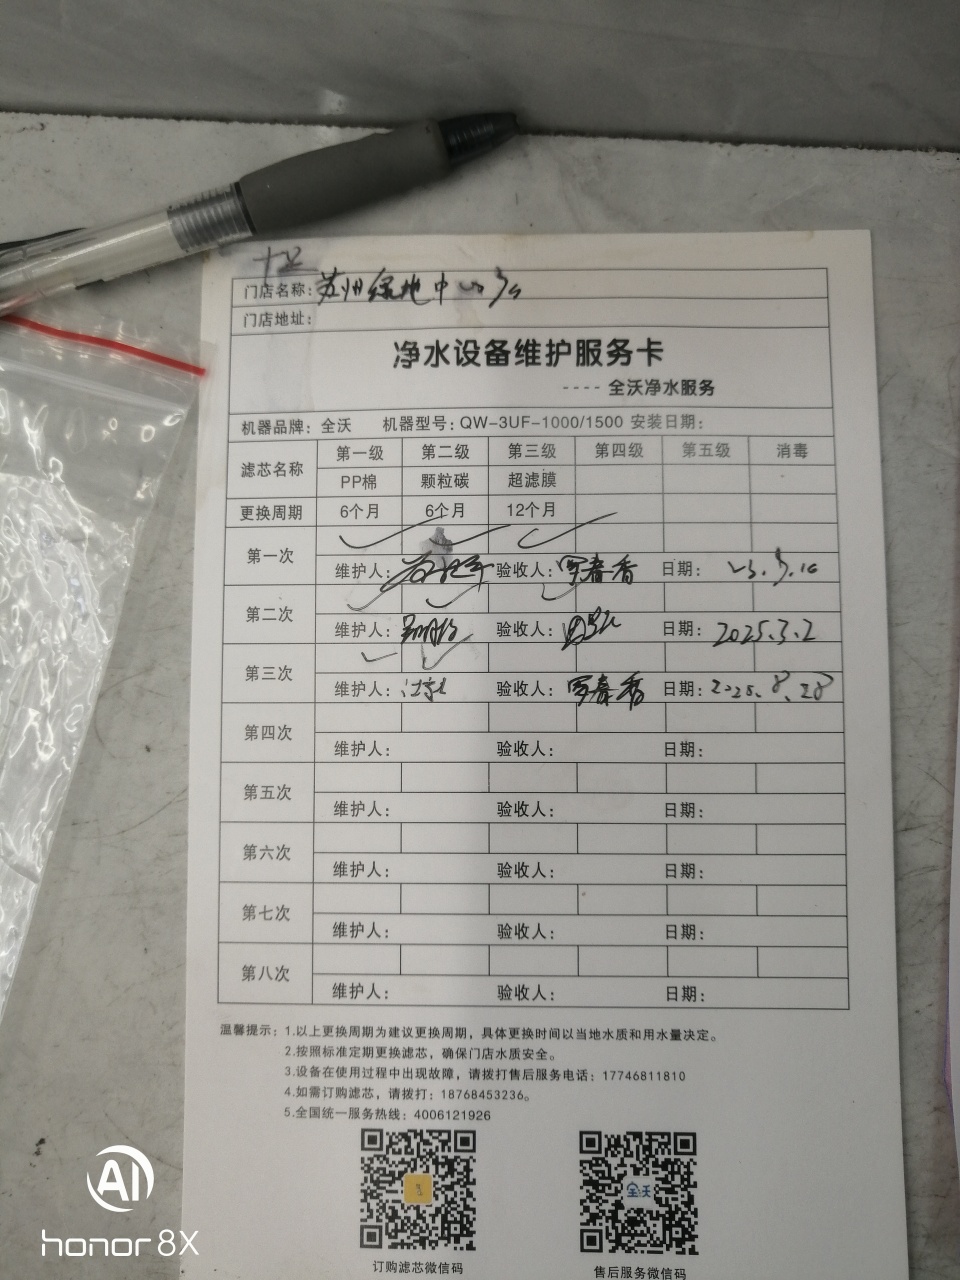 门店名称: 苏州绿地中心店
门店地址:
净水设备维护服务卡
---- 全沃净水服务
机器品牌: 全沃 机器型号: QW-3UF-1000/1500 安装日期:
滤芯名称 第一级 第二级 第三级 第四级 第五级 消毒
PP棉 颗粒碳 超滤膜
更换周期 6个月 6个月 12个月
第一次
维护人: 验收人: 罗春香 日期:
第二次
维护人: 验收人: 日期: 2025.3.2
第三次
维护人: 验收人: 罗春香 日期: 2025.8.28
第四次
维护人: 验收人: 日期:
第五次
维护人: 验收人: 日期:
第六次
维护人: 验收人: 日期:
第七次
维护人: 验收人: 日期:
第八次
维护人: 验收人: 日期:
温馨提示: 1.以上更换周期为建议更换周期，具体更换时间以当地水质和用水量决定。
2.按照标准定期更换滤芯，确保门店水质安全。
3.设备在使用过程中出现故障，请拨打售后服务电话: 17746811810
4.如需订购滤芯，请拨打: 18768453236。
5.全国统一服务热线: 4006121926
全沃
订购滤芯微信码 售后服务微信码
AI
honor 8X